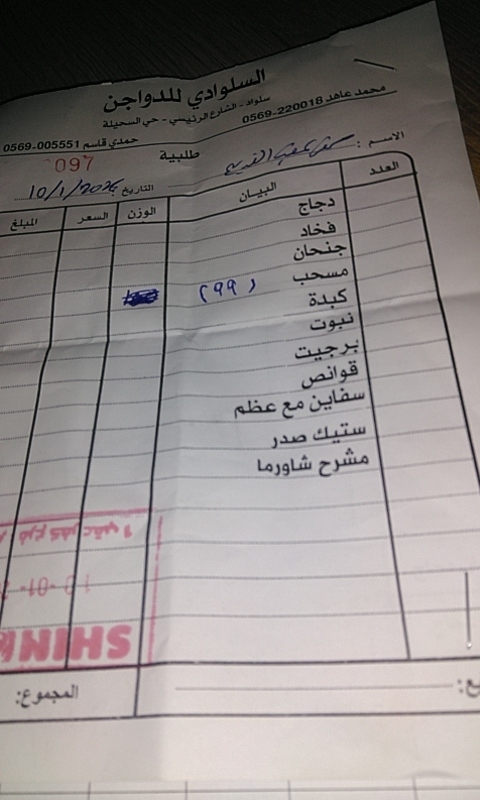 السلوادي للدواجن
سلواد - الشارع الرئيسي - حي السحيلة
محمد عاهد 220018-0569
حمدي قاسم 005551-0569
طلبية
097
الاسم :
التاريخ 10/1/2026
العدد البيان الوزن السعر المبلغ
دجاج
فخاد
جنحان
مسحب (99)
كبدة
نبوت
برجيت
قوانص
سفاين مع عظم
ستيك صدر
مشرح شاورما
SHINI
المجموع: